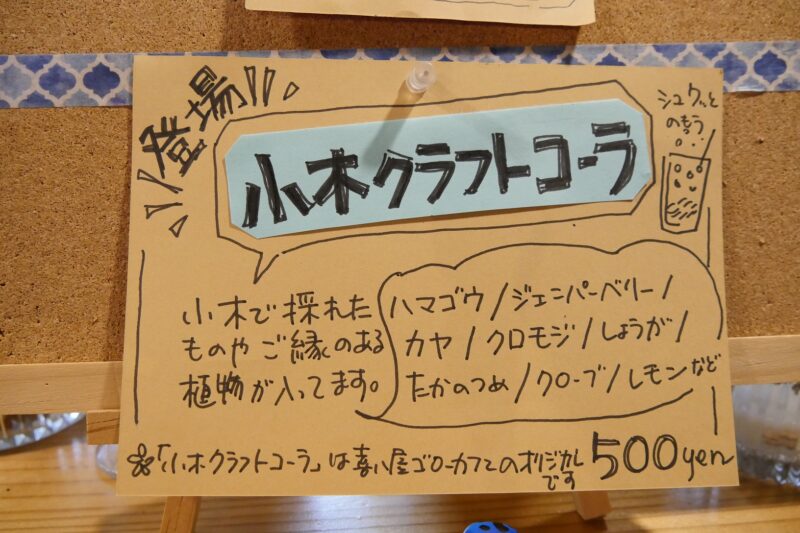 登場
小木クラフトコーラ
シュワッと
のもう
小木で採れた
ものやご縁のある
植物が入ってます。
ハマゴウ/ジェニパーベリー/
カヤ/クロモジ/しょうが/
たかのつめ/クローブ/レモンなど
「小木クラフトコーラ」は喜八屋ゴローカフェのオリジナル
です
500yen